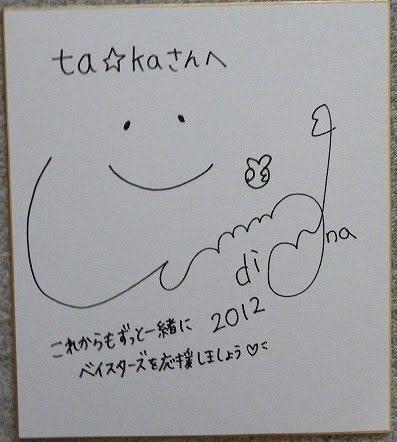 ta☆kaさんへ
diana
2012
これからもずっと一緒に
ベイスターズを応援しましょう♡